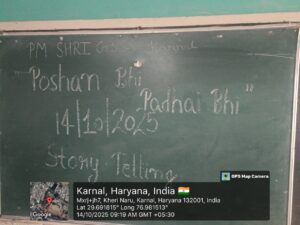 PM SHRI G
Poshan Bhi
Padhai Bhi"
14/10/2025
Story Telling
GPS Map Camera
Karnal, Haryana, India
Mxrj+jh7, Kheri Naru, Karnal, Haryana 132001, India
Lat 29.691815° Long 76.981513°
14/10/2025 09:19 AM GMT +05:30
Google